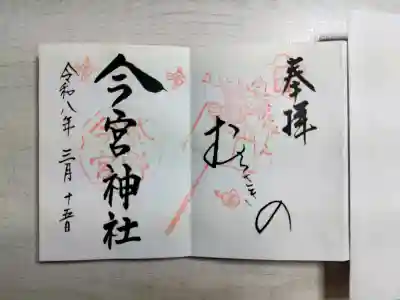 奉拝
むらさきの
今宮神社
令和八年 三月十五日